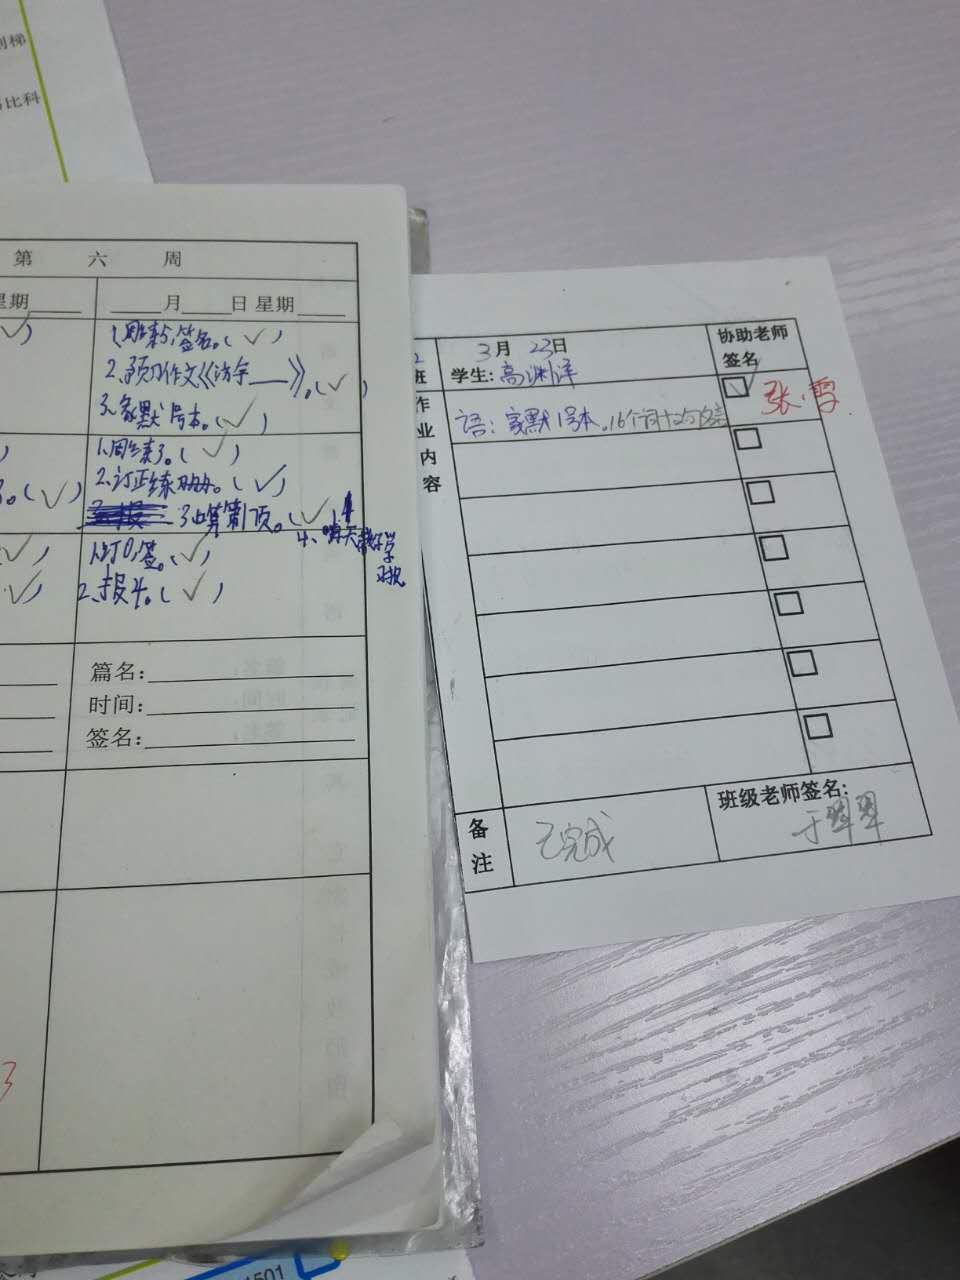 别梯
比科
第 六 周
星期____
____月____日 星期____
1.周练5,签名。(✓)
2.预习作文《 ___》。(✓)
3.家默1号本。(✓)
1.周练3。(✓)
2.订正练习册。(✓)
3.口算第1页。(✓)
1.订0,签。(✓)
2.报头。(✓)
篇名:
时间:
签名:
协助老师
签名
3月 23日
班
学生:高渊洋
作
业
内
容
语:家默1号本。16个词
张雪
备
注
已完成
班级老师签名:
于翠翠
1501